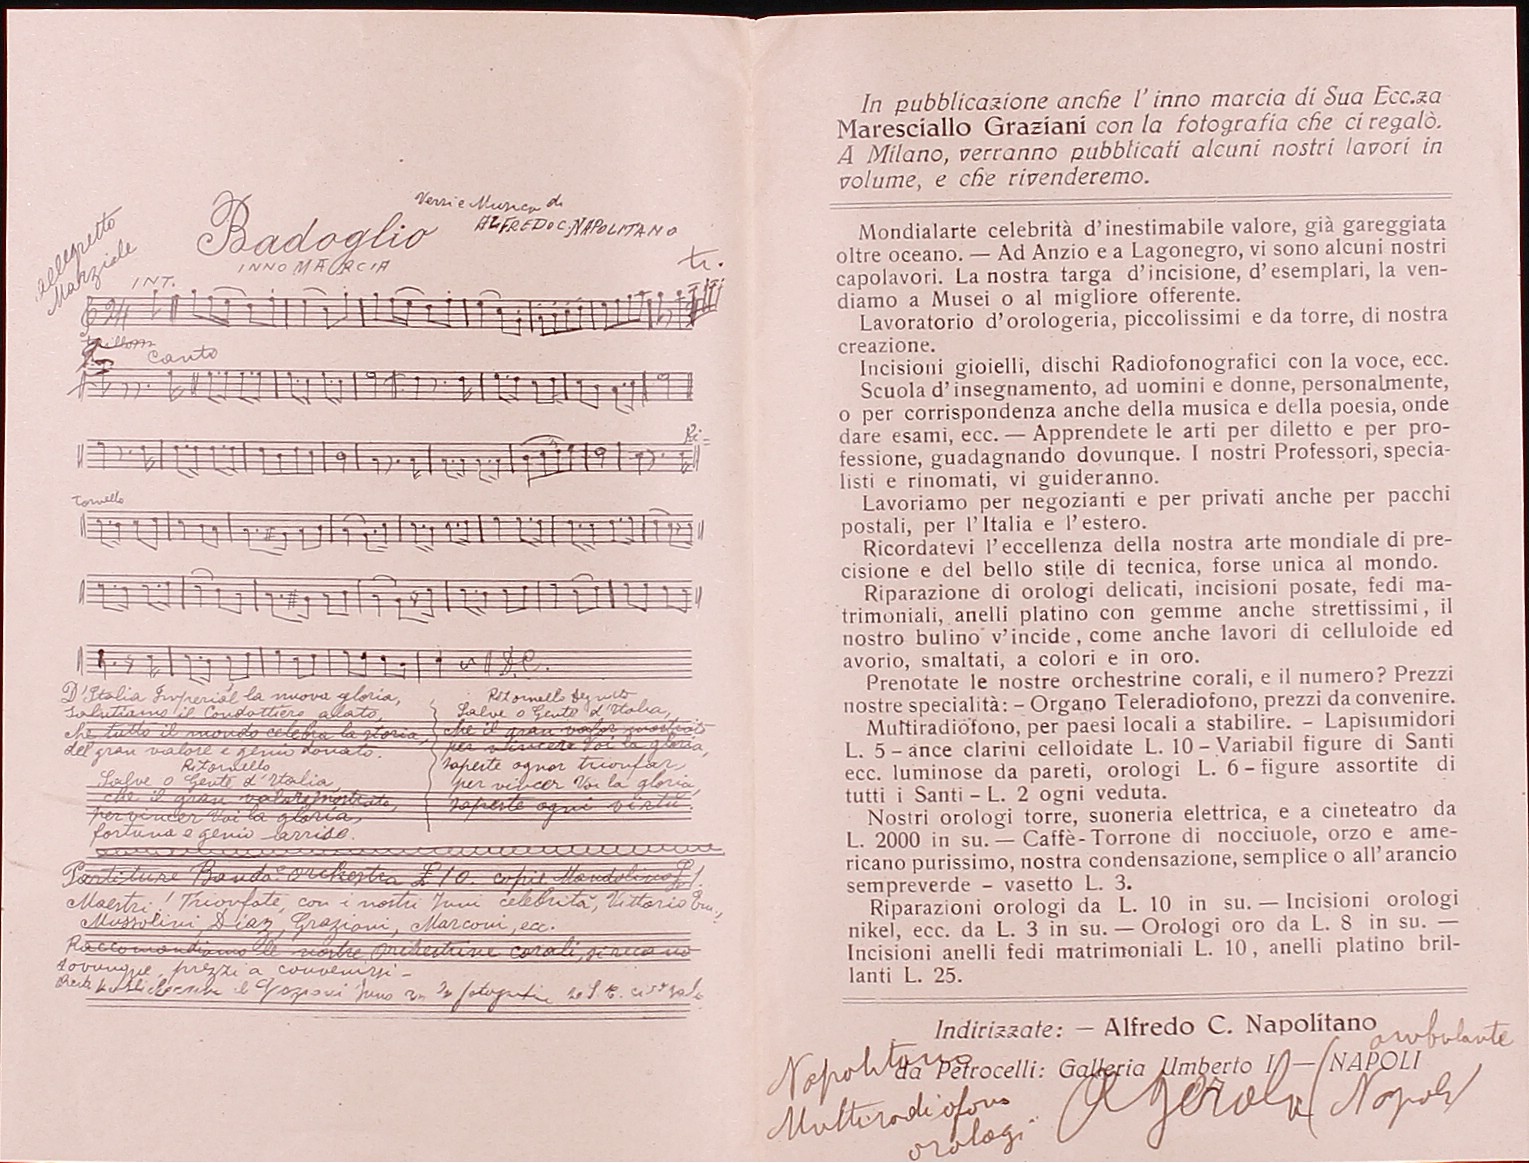 Allegretto
Marziale
Badoglio
INNO MARCIA
Versi e Musica di
ALFREDO C. NAPOLITANO
INT.
tr.
Canto
Ri=
tornello
D'Italia Imperial la nuova gloria,
Salutiamo il Condottiero alato,
che tutto il mondo celebra la storia,
del gran valore e genio donato.
Ritornello
Salve o Gente d'Italia,
che il gran valore mostrato,
per vincer Voi la gloria,
fortuna e genio arriso.
Ritornello Seguito
Salve o Gente d'Italia,
che il gran valor mostrato
per vincere Voi la gloria,
sapeste ognor trionfar,
per vincer Voi la gloria,
sapeste ogni virtù.
Partiture Banda Orchestra £ 10. copie Mandolino £ 1.
Maestri! Trionfate, con i nostri Inni celebrità, Vittorio Em.,
Mussolini, Diaz, Graziani, Marconi, ecc.
Raccomandiamo le nostre Orchestrine corali, si recano
dovunque, prezzi a convenirsi -
In pubblicazione anche l'inno marcia di Sua Ecc.za
Maresciallo Graziani con la fotografia che ci regalò.
A Milano, verranno pubblicati alcuni nostri lavori in
volume, e che rivenderemo.
Mondialarte celebrità d'inestimabile valore, già gareggiata
oltre oceano. — Ad Anzio e a Lagonegro, vi sono alcuni nostri
capolavori. La nostra targa d'incisione, d'esemplari, la ven-
diamo a Musei o al migliore offerente.
Lavoratorio d'orologeria, piccolissimi e da torre, di nostra
creazione.
Incisioni gioielli, dischi Radiofonografici con la voce, ecc.
Scuola d'insegnamento, ad uomini e donne, personalmente,
o per corrispondenza anche della musica e della poesia, onde
dare esami, ecc. — Apprendete le arti per diletto e per pro-
fessione, guadagnando dovunque. I nostri Professori, specia-
listi e rinomati, vi guideranno.
Lavoriamo per negozianti e per privati anche per pacchi
postali, per l'Italia e l'estero.
Ricordatevi l'eccellenza della nostra arte mondiale di pre-
cisione e del bello stile di tecnica, forse unica al mondo.
Riparazione di orologi delicati, incisioni posate, fedi ma-
trimoniali, anelli platino con gemme anche strettissimi, il
nostro bulino v'incide, come anche lavori di celluloide ed
avorio, smaltati, a colori e in oro.
Prenotate le nostre orchestrine corali, e il numero? Prezzi
nostre specialità: - Organo Teleradiofono, prezzi da convenire.
Multiradiofono, per paesi locali a stabilire. - Lapisumidori
L. 5 - ance clarini celloidate L. 10 - Variabil figure di Santi
ecc. luminose da pareti, orologi L. 6 - figure assortite di
tutti i Santi - L. 2 ogni veduta.
Nostri orologi torre, suoneria elettrica, e a cineteatro da
L. 2000 in su. — Caffè-Torrone di nocciuole, orzo e ame-
ricano purissimo, nostra condensazione, semplice o all'arancio
sempreverde - vasetto L. 3.
Riparazioni orologi da L. 10 in su. — Incisioni orologi
nikel, ecc. da L. 3 in su. — Orologi oro da L. 8 in su. —
Incisioni anelli fedi matrimoniali L. 10, anelli platino bril-
lanti L. 25.
Indirizzate: — Alfredo C. Napolitano
ambulante
da Petrocelli: Galleria Umberto I — NAPOLI
Napolitano
Multiradiofono
orologi
Agerola (Napoli)